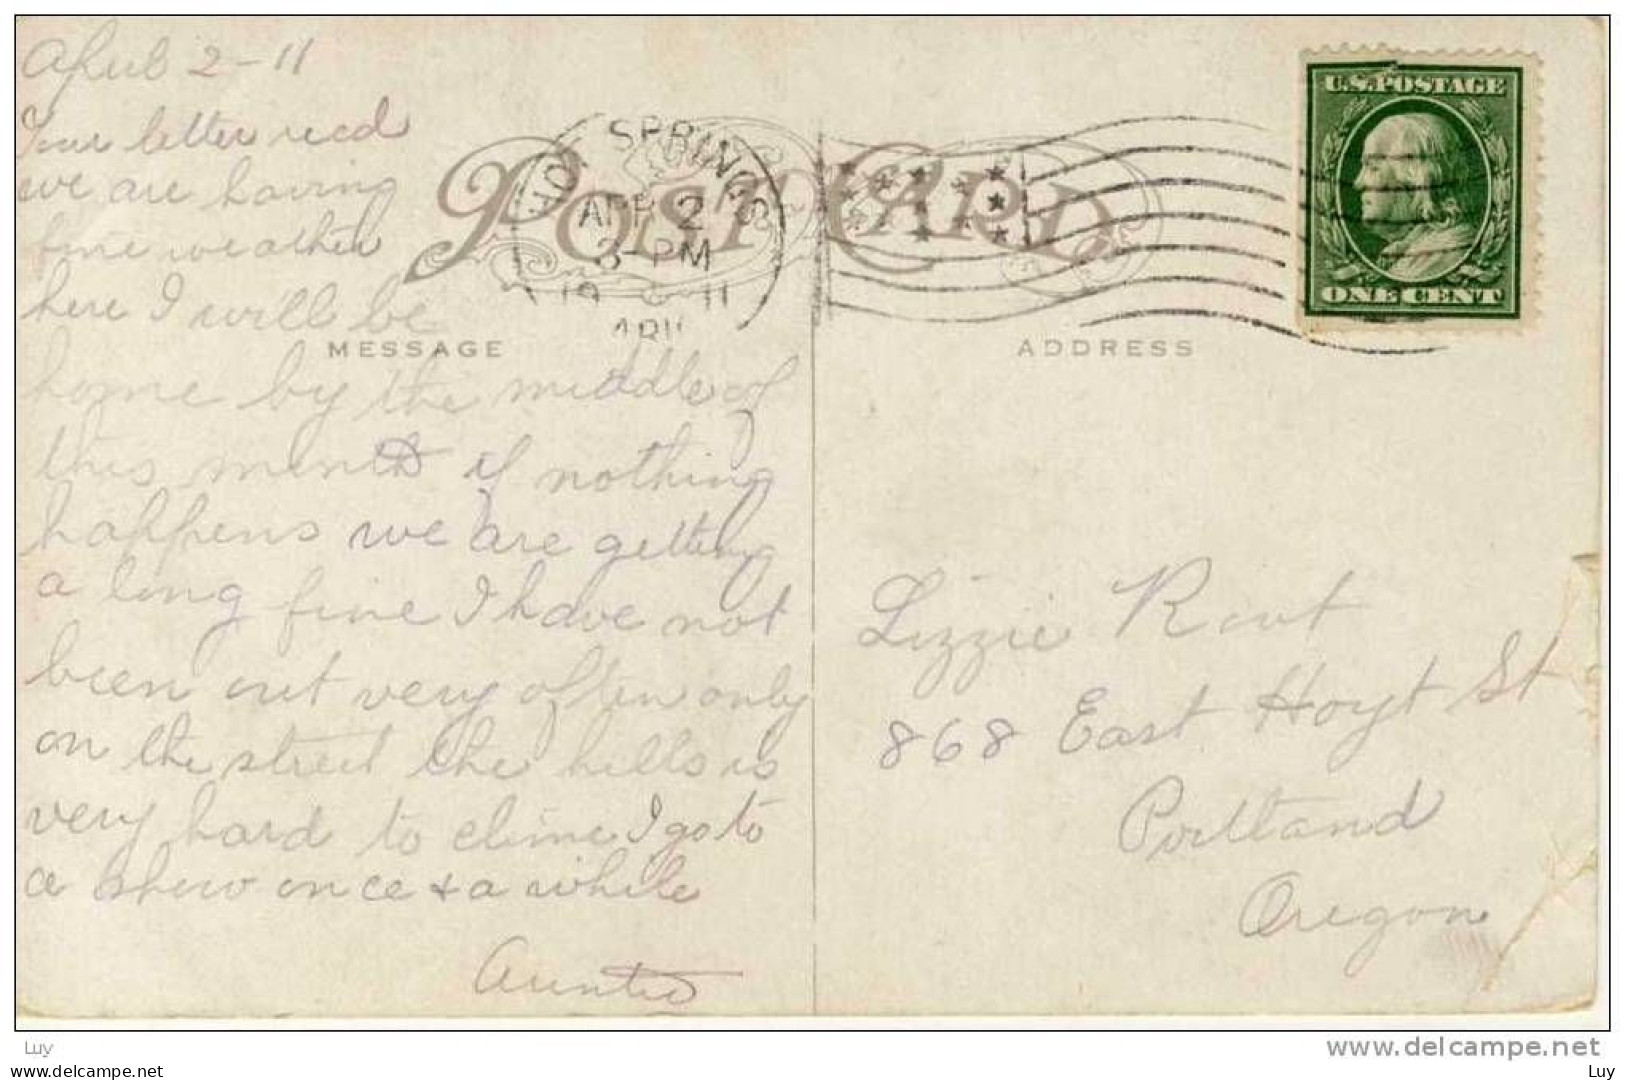 April 2-11
Your letter recd
we are having
fine weather
here I will be
home by the middle of
this month if nothing
happens we are getting
a long fine I have not
been out very often only
on the street the hills is
very hard to clime I go to
a show once & a while
Auntie
POST CARD
HOT SPRINGS
APR 2
3-PM
19 11
ARK
MESSAGE
ADDRESS
U.S. POSTAGE
ONE CENT
Lizzie
868 East Hoyt St
Portland
Oregon
Luy
www.delcampe.net
Luy